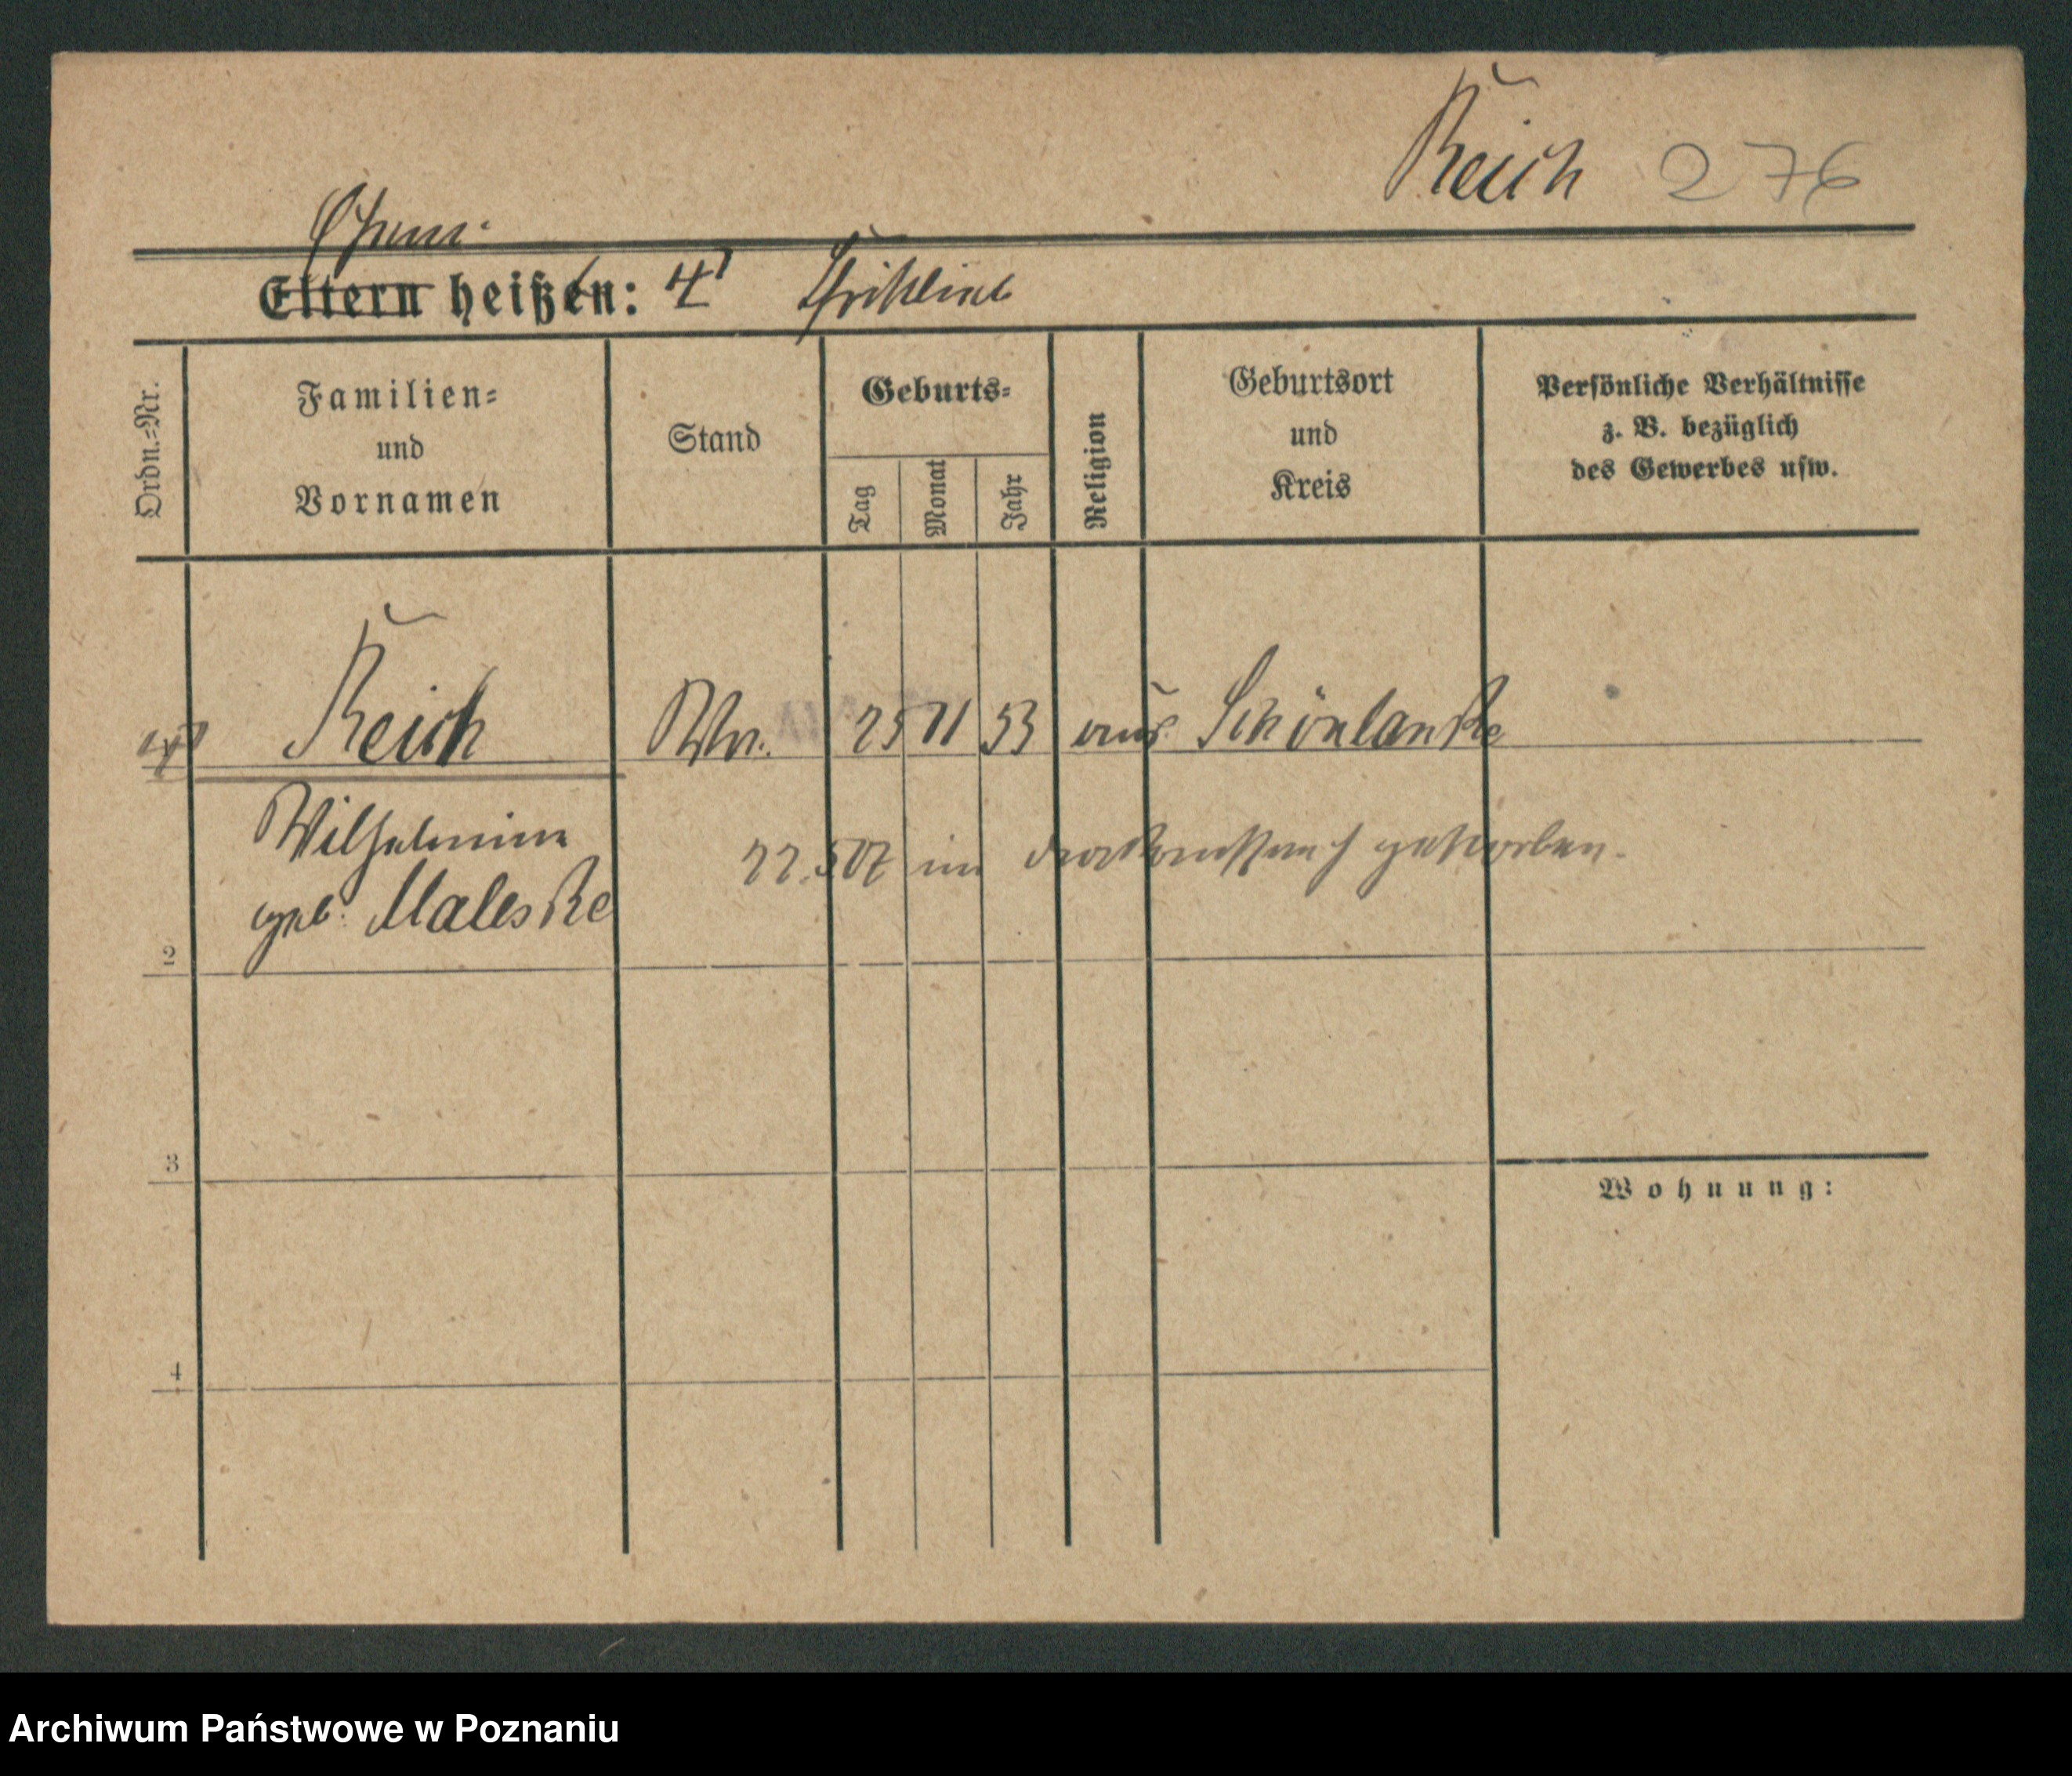 Reich 276
Ehem.
Eltern heißen: 4'
Ordn.=Nr.
Familien=
und
Vornamen
Stand
Geburts=
Tag
Monat
Jahr
Religion
Geburtsort
und
Kreis
Persönliche Verhältnisse
z. B. bezüglich
des Gewerbes usw.
Reich Ww. 25 11 53 aus Schönlanke
Wilhelmine
22.5 07 im gestorben.
geb. Maleske
2
3
Wohnung:
4
Archiwum Państwowe w Poznaniu